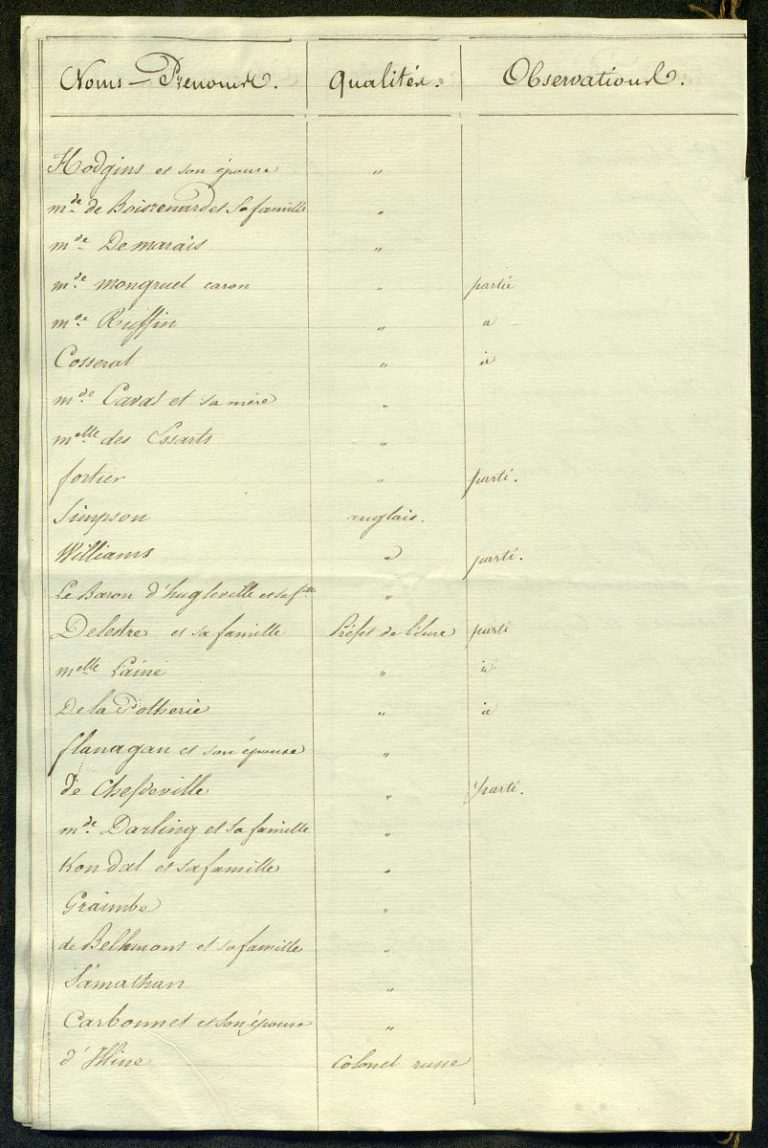 Noms – Prénoms. Qualités. Observations.
Hodgins et son épouse "
mde. de Boisrenard et sa famille "
mde. Demarais "
mde. mongruel caron " partie
mde. Ruffin " id
Cosserat " id
mde. Cavas et sa mère "
melle. des Essarts "
fortier " parti.
Simpson anglais.
Williams id parti.
Le Baron d'hugleville et sa flle "
Delestre et sa famille Préfet de l'Eure parti
melle Lainé " id
De la Potherie " id
flanagan et son épouse "
de Chefdeville " parti.
mde. Darling et sa famille "
Kondal et sa famille "
Graimbe "
de Bellemont et sa famille "
Samathan "
Carbonnet et son épouse "
Colonel russe